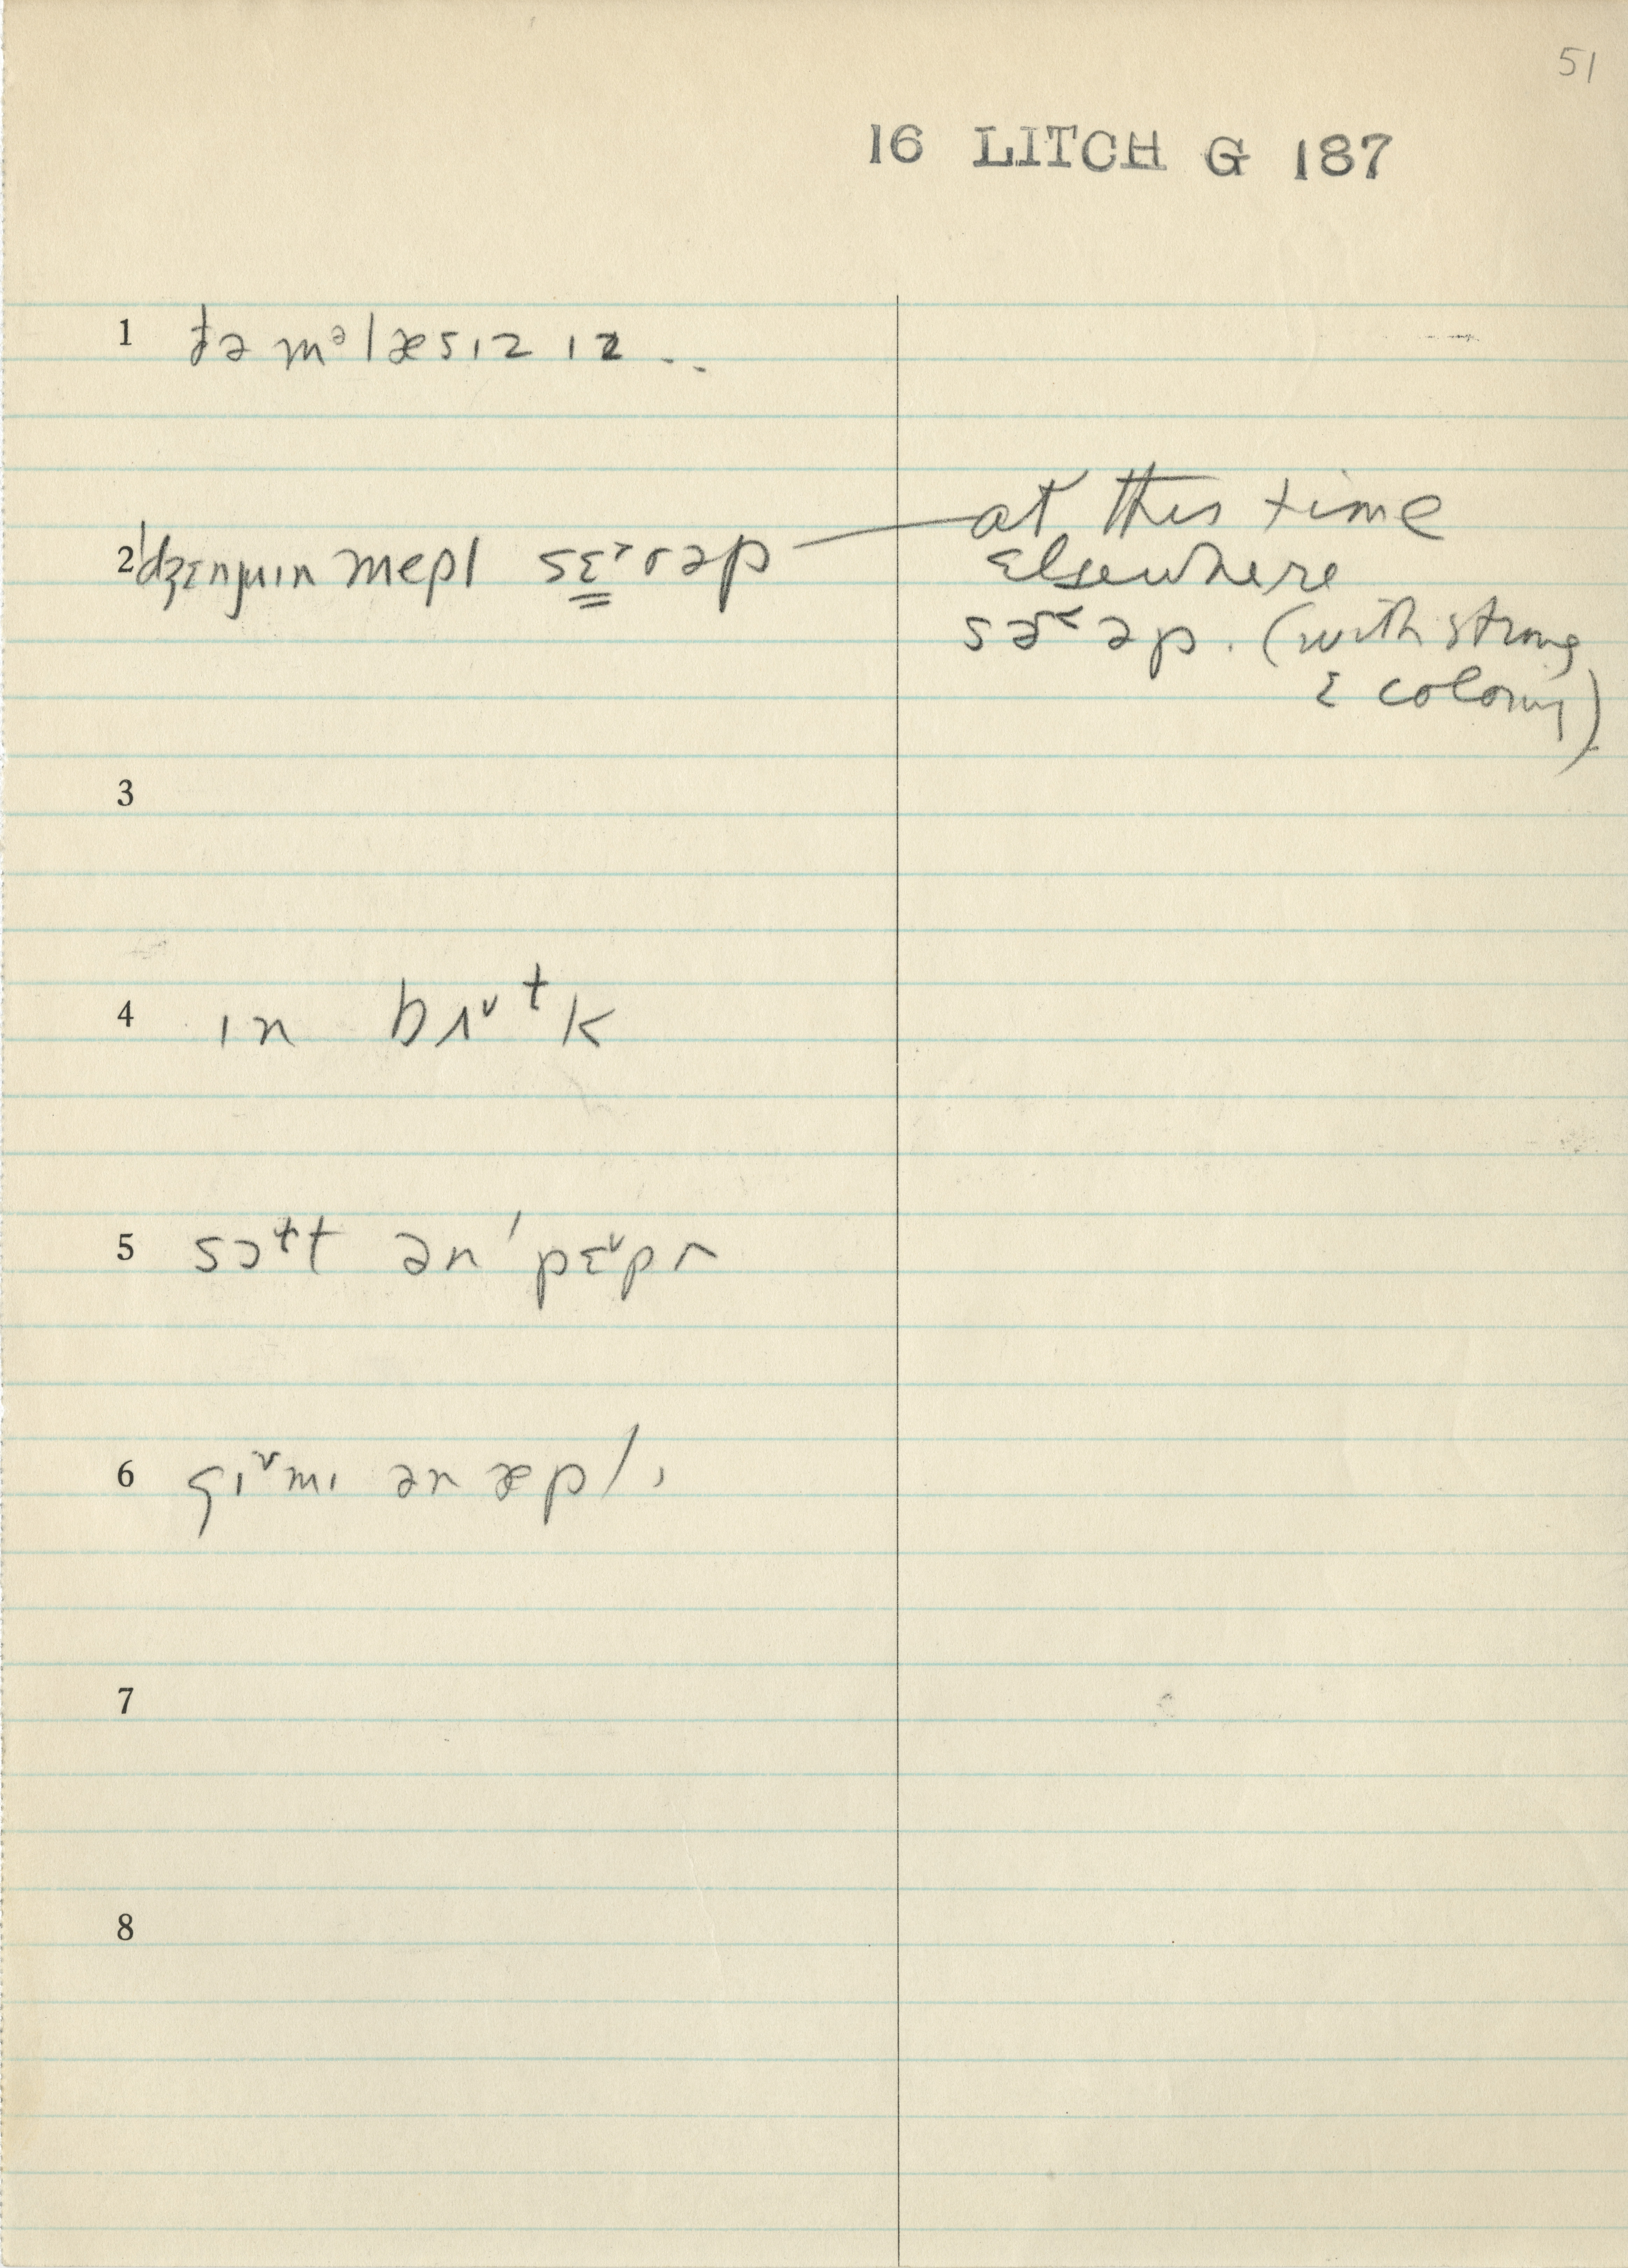 51
16 LITCH G 187
1 ðə mᵊlæsɪz ɪz ..
2 ˈdʒɛnjuɪn mepl sɛ˃rəp — at this time
elsewhere
sɚ˂əp. (with strong
ɛ coloring)
3
4 ɪn brɪˇᵗk
5 sɔᵗt ən ˈpɛˇpr
6 gɪˇmɪ ən æpl,
7
8